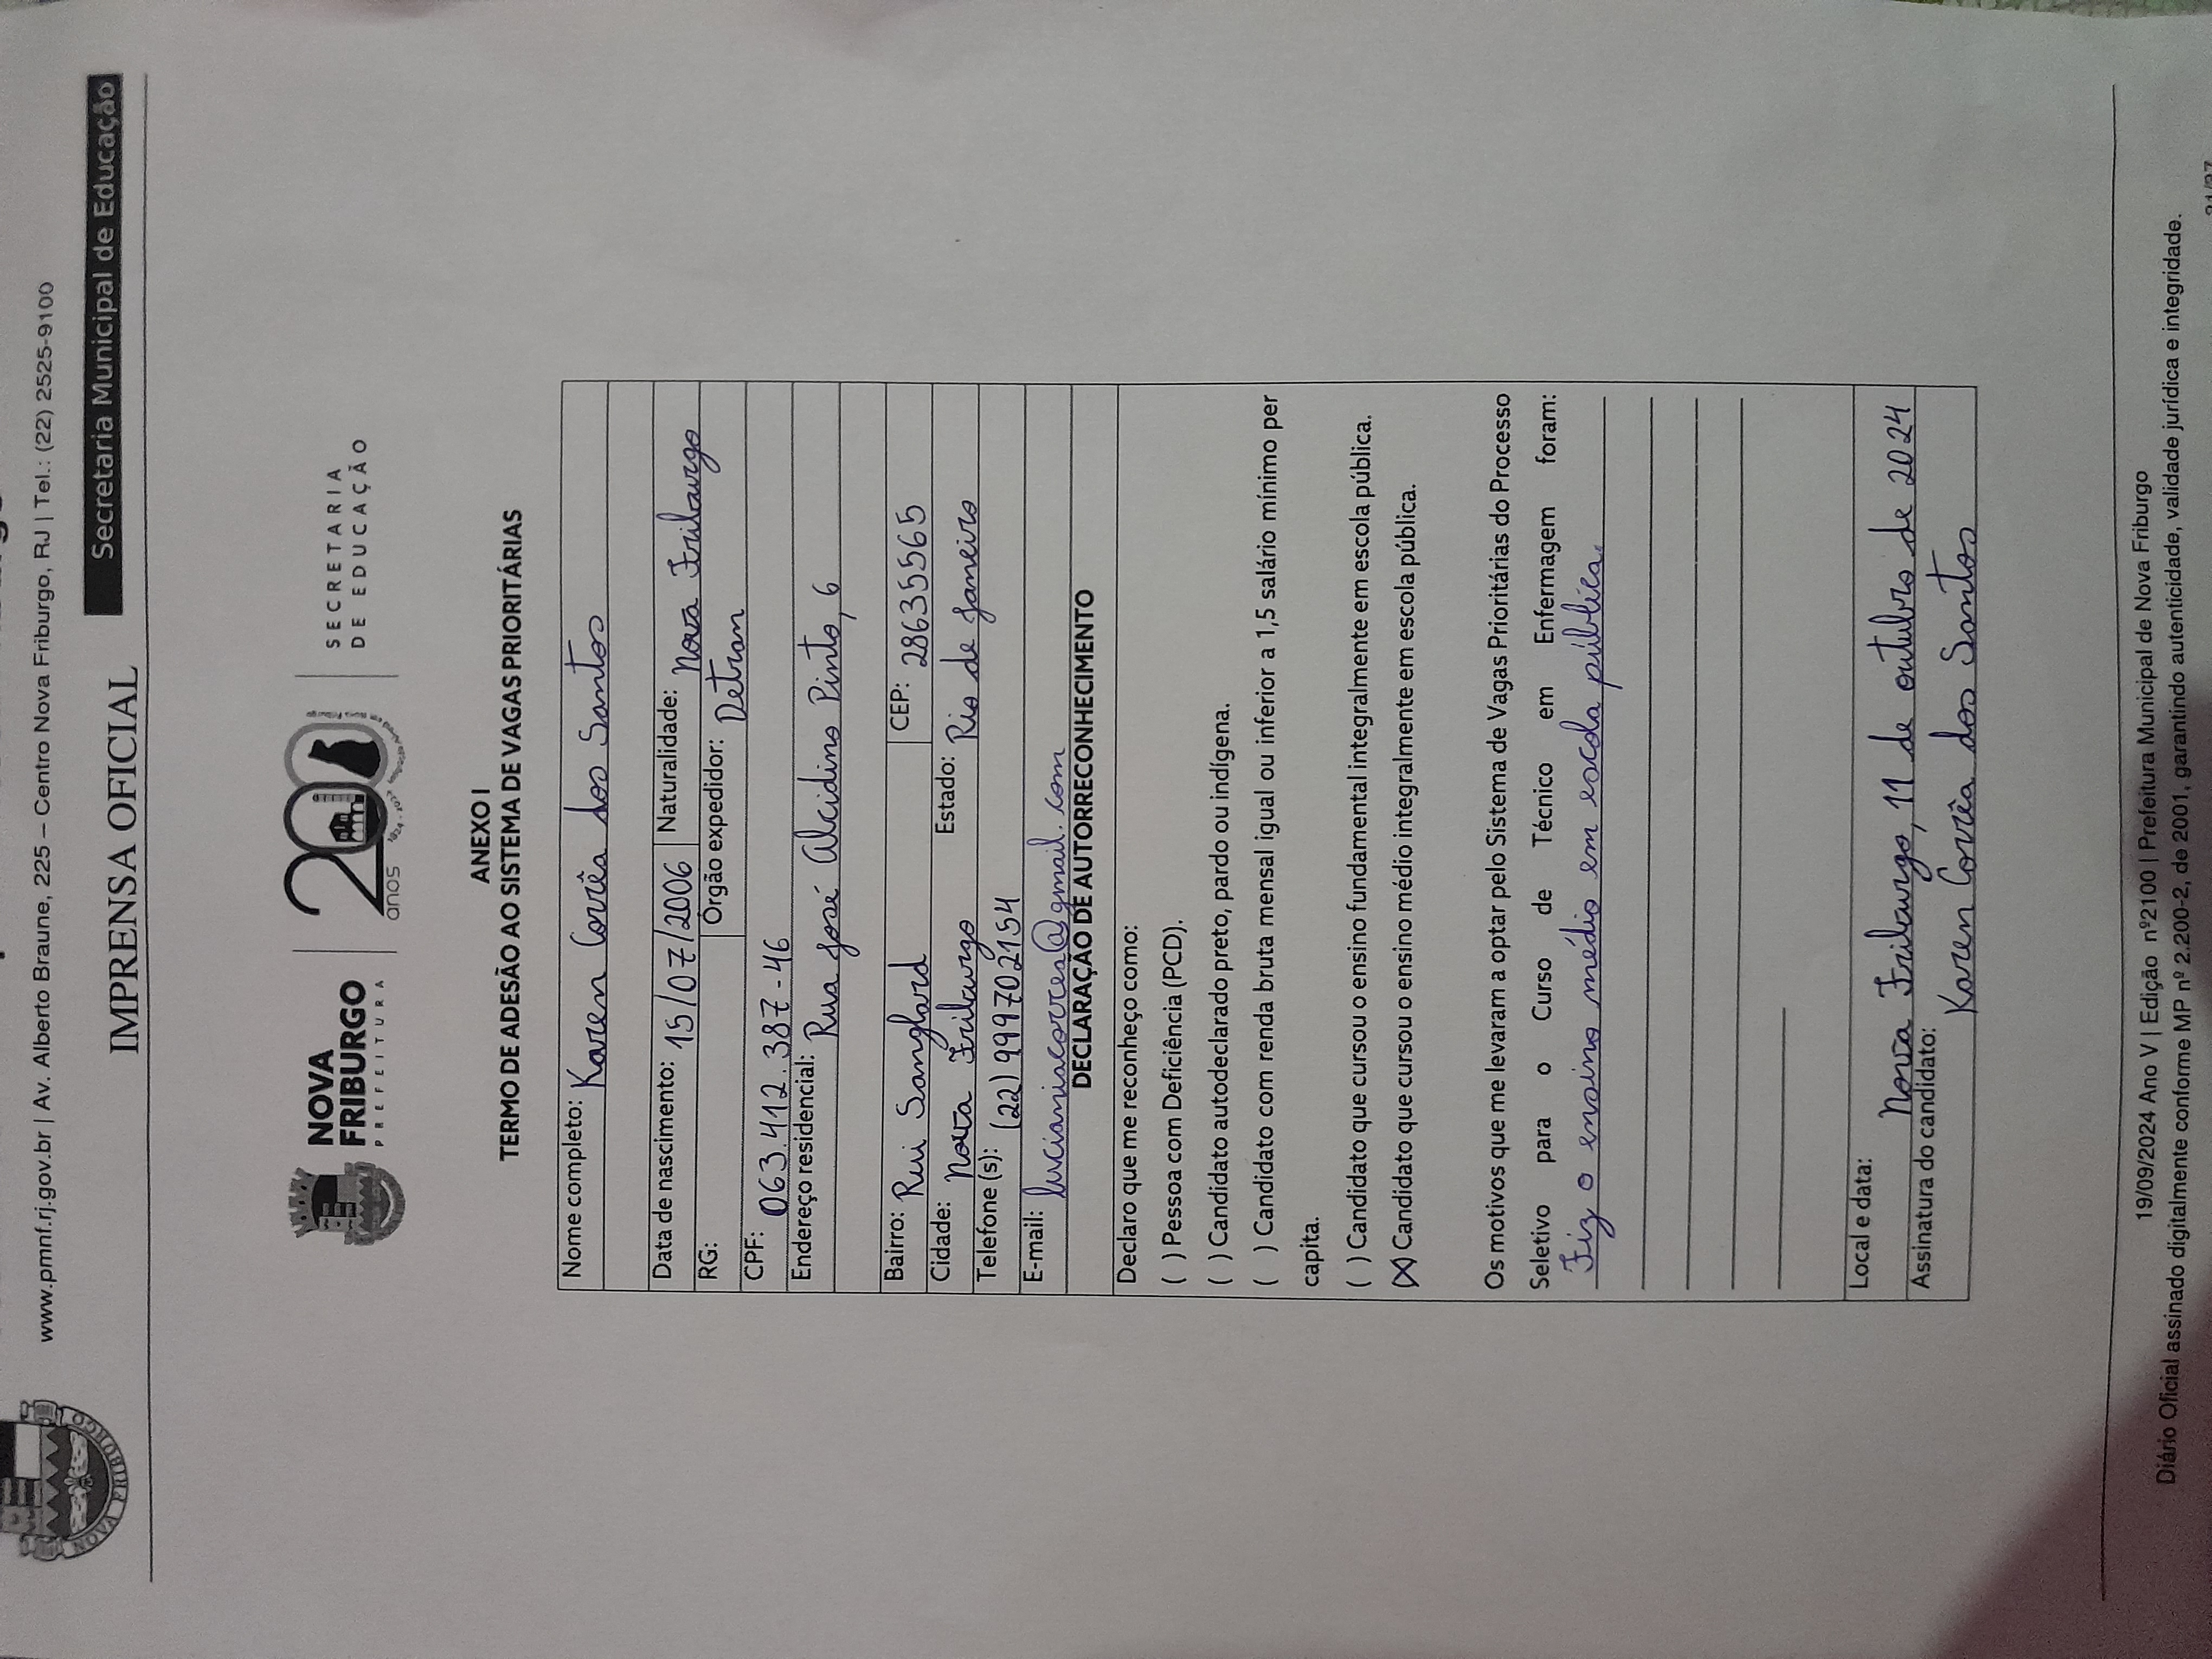 www.pmnf.rj.gov.br | Av. Alberto Braune, 225 – Centro Nova Friburgo, RJ | Tel.: (22) 2525-9100
Secretaria Municipal de Educação
IMPRENSA OFICIAL
NOVA FRIBURGO
NOVA
FRIBURGO
PREFEITURA
200
anos
SECRETARIA
DE EDUCAÇÃO
ANEXO I
TERMO DE ADESÃO AO SISTEMA DE VAGAS PRIORITÁRIAS
Nome completo: Karen Corrêa dos Santos
Data de nascimento: 15/07/2006 Naturalidade: Nova Friburgo
RG: Órgão expedidor: Detran
CPF: 063.412.387-46
Endereço residencial: Rua José Alcidino Pinto, 6
Bairro: Rui Sanglard CEP: 28635565
Cidade: Nova Friburgo Estado: Rio de Janeiro
Telefone (s): (22) 999702154
E-mail: lucianiacorrea@gmail.com
DECLARAÇÃO DE AUTORRECONHECIMENTO
Declaro que me reconheço como:
( ) Pessoa com Deficiência (PCD).
( ) Candidato autodeclarado preto, pardo ou indígena.
( ) Candidato com renda bruta mensal igual ou inferior a 1,5 salário mínimo per
capita.
( ) Candidato que cursou o ensino fundamental integralmente em escola pública.
(X) Candidato que cursou o ensino médio integralmente em escola pública.
Os motivos que me levaram a optar pelo Sistema de Vagas Prioritárias do Processo
Seletivo para o Curso de Técnico em Enfermagem foram:
Fiz o ensino médio em escola pública.
Local e data: Nova Friburgo, 11 de outubro de 2024
Assinatura do candidato: Karen Corrêa dos Santos
19/09/2024 Ano V | Edição nº2100 | Prefeitura Municipal de Nova Friburgo
Diário Oficial assinado digitalmente conforme MP nº 2.200-2, de 2001, garantindo autenticidade, validade jurídica e integridade.